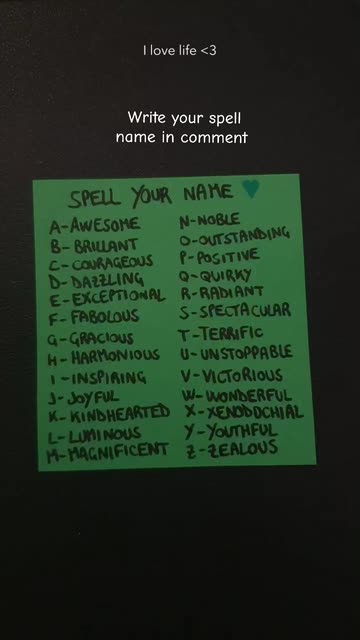 I love life <3
Write your spell
name in comment
SPELL YOUR NAME
A-AWESOME
B-BRILLANT
C-COURAGEOUS
D-DAZZLING
E-EXCEPTIONAL
F-FABOLOUS
G-GRACIOUS
H-HARMONIOUS
I-INSPIRING
J-JOYFUL
K-KINDHEARTED
L-LUMINOUS
M-MAGNIFICENT
N-NOBLE
O-OUTSTANDING
P-POSITIVE
Q-QUIRKY
R-RADIANT
S-SPECTACULAR
T-TERRIFIC
U-UNSTOPPABLE
V-VICTORIOUS
W-WONDERFUL
X-XENODOCHIAL
Y-YOUTHFUL
Z-ZEALOUS